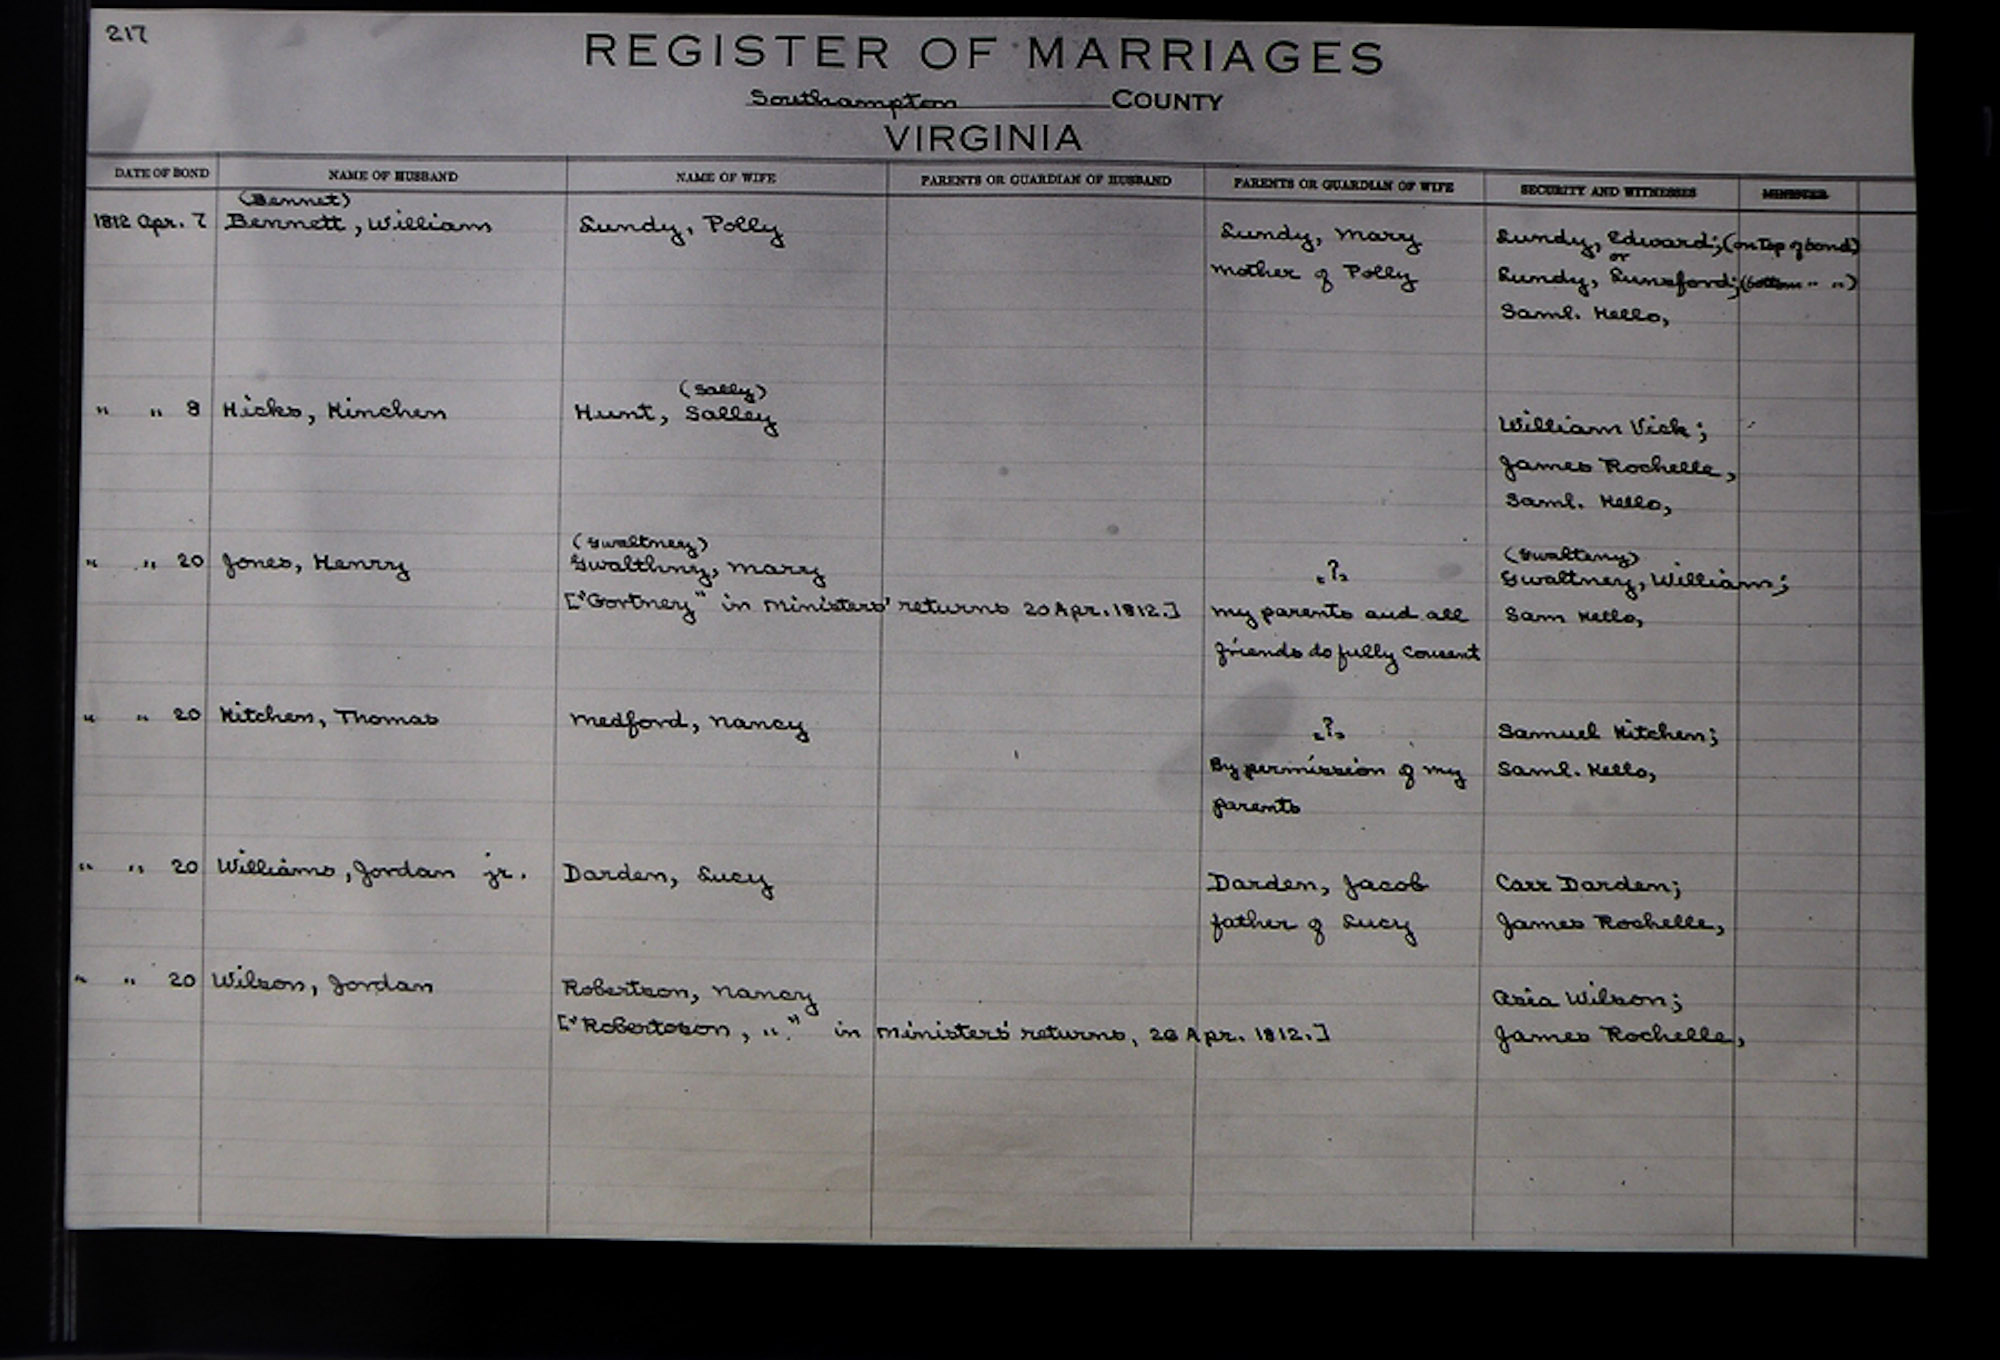 217
REGISTER OF MARRIAGES
Southampton COUNTY
VIRGINIA
DATE OF BOND NAME OF HUSBAND NAME OF WIFE PARENTS OR GUARDIAN OF HUSBAND PARENTS OR GUARDIAN OF WIFE SECURITY AND WITNESSES MINISTER
(Bennet)
1812 Apr. 7 Bennett, William Lundy, Polly Lundy, Mary Lundy, Edward; (on Top of bond)
or
mother of Polly Lundy, Lunsford; (bottom " ")
Saml. Kello,
(Sally)
" " 8 Hicks, Kinchen Hunt, Salley William Vick;
James Rochelle,
Saml. Kello,
(Gwaltney) (Gwalteny)
" " 20 Jones, Henry Gwalthny, Mary ? Gwaltney, William;
["Gortney" in Ministers' returns 20 Apr. 1812.] my parents and all Sam Kello,
friends do fully consent
" " 20 Kitchen, Thomas Medford, Nancy ? Samuel Kitchen;
By permission of my Saml. Kello,
parents
" " 20 Williams, Jordan jr. Darden, Lucy Darden, Jacob Carr Darden;
father of Lucy James Rochelle,
" " 20 Wilson, Jordan Robertson, Nancy Asia Wilson;
["Robertoson, " " in Ministers' returns, 26 Apr. 1812.] James Rochelle,